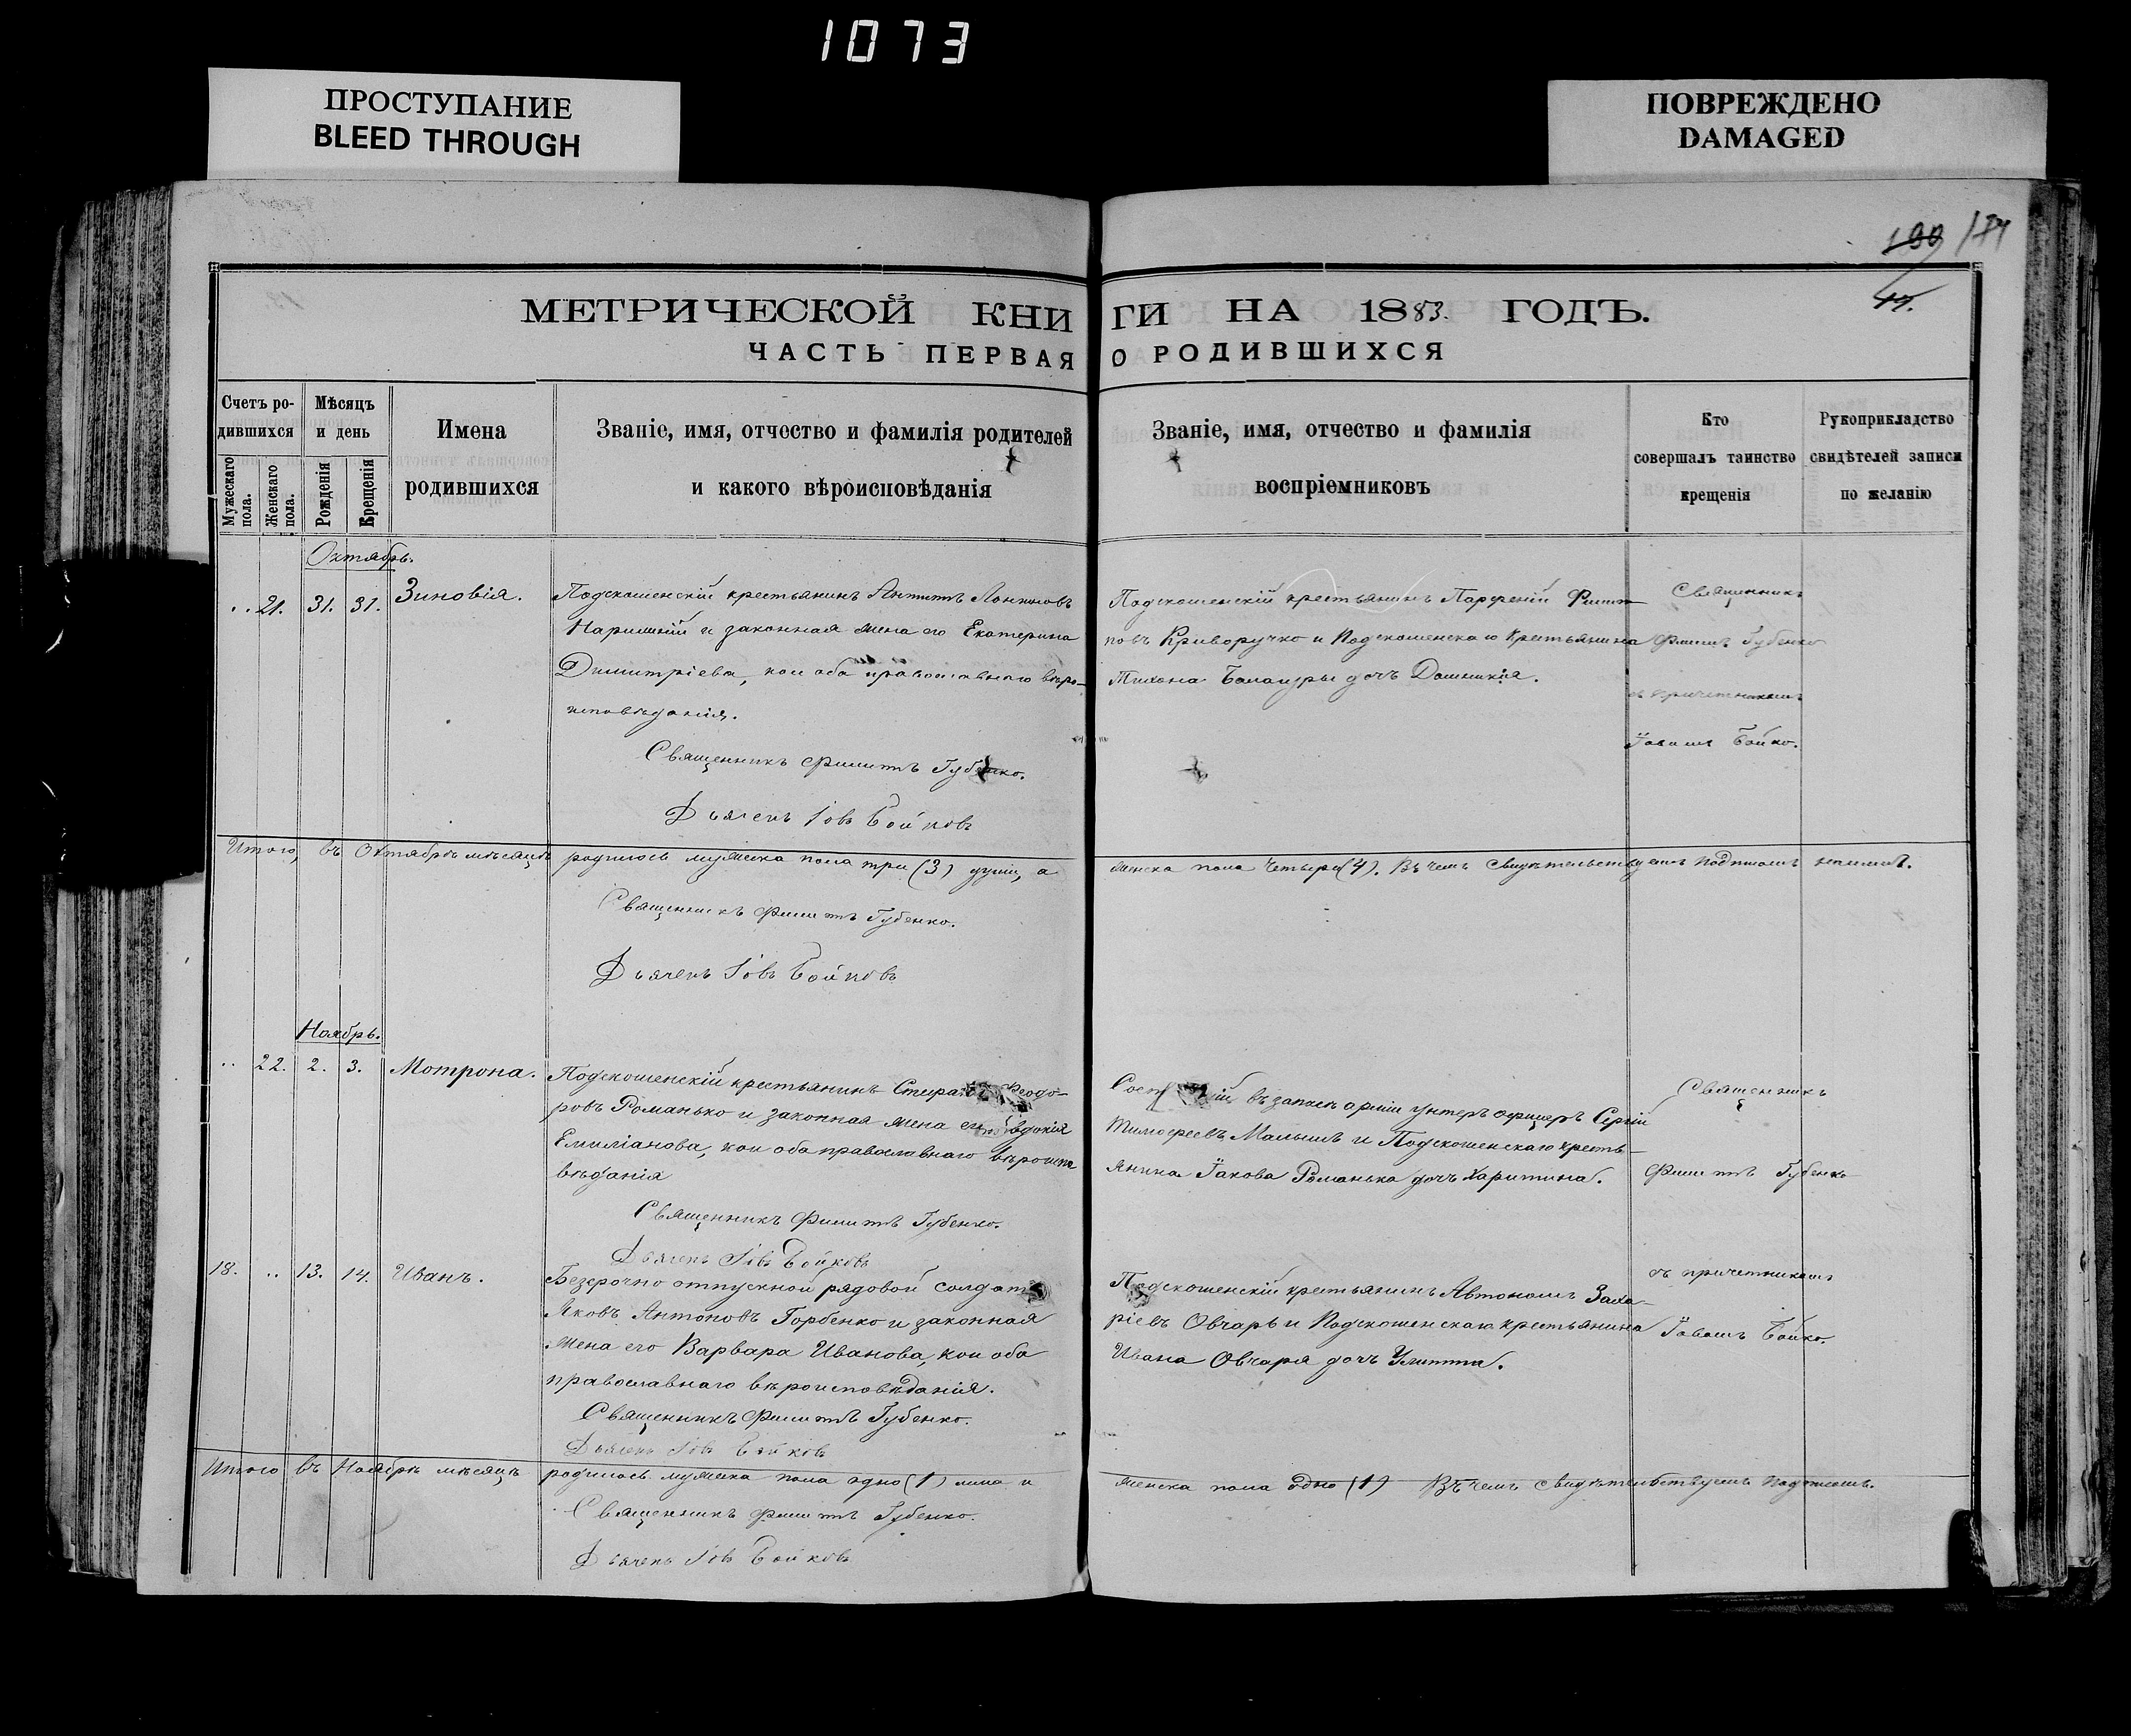 1073
ПРОСТУПАНИЕ
BLEED THROUGH
ПОВРЕЖДЕНО
DAMAGED
МЕТРИЧЕСКОЙ КНИГИ НА 1883. ГОДЪ.
ЧАСТЬ ПЕРВАЯ О РОДИВШИХСЯ
Счетъ ро-
дившихся
Мужескаго пола.
Женскаго пола.
Мѣсяцъ
и день
Рожденія
Крещенія
Имена
родившихся
Званіе, имя, отчество и фамилія родителей
и какого вѣроисповѣданія
Званіе, имя, отчество и фамилія
воспріемниковъ
Кто
совершалъ таинство
крещенія
Рукоприкладство
свидѣтелей записи
по желанію
Октябрь.
21. 31. 31. Зиновія.
Подскошенскій крестьянинъ Антипъ Логиновъ
и законная жена его Екатерина
Димитріева, кои оба православнаго вѣро-
исповѣданія.
Священникъ Филиппъ Губенко.
Дьячекъ Іовъ Бойковъ
Подскошенскій крестьянинъ Парѳеній Филип
повъ Криворучко и Подскошенскаго крестьянина
Тихона Балацуры дочь Домникія.
Священникъ
Филип. Губенко
съ причетникомъ
Іовомъ Бойко.
Итого, въ Октябрѣ мѣсяцѣ родилось мужеска пола три (3) души, а женска пола четыре (4). Въ чемъ свидѣтельствуемъ подписомъ нашимъ.
Священникъ Филиппъ Губенко.
Дьячекъ Іовъ Бойковъ
Ноябрь.
22. 2. 3. Мотрона.
Подскошенскій крестьянинъ Стефанъ Ѳеодо-
ровъ Романько и законная жена его Евдокія
Емиліанова, кои оба православнаго вѣроиспо
вѣданія
Священникъ Филиппъ Губенко.
Дьячекъ Іовъ Бойковъ
въ запасѣ арміи унтеръ офицеръ Сергій
Тимофеевъ Малышъ и Подскошенскаго кресть-
янина Іакова Романька дочь Харитина.
Священникъ
Филиппъ Губенко
18. 13. 14. Иванъ.
Безсрочно отпускной рядовой солдатъ
Яковъ Антоновъ Горбенко и законная
жена его Варвара Иванова, кои оба
православнаго вѣроисповѣданія.
Священникъ Филиппъ Губенко.
Дьячекъ Іовъ Бойковъ
Подскошенскій крестьянинъ Автономъ Заха-
ріевъ Овчарь и Подскошенскаго крестьянина
Ивана Овчаря дочь Улита.
съ причетникомъ
Іовомъ Бойко
Итого въ Ноябрѣ мѣсяцѣ родилось мужеска пола одно (1) лице и женска пола одно (1) Въ чемъ свидѣтельствуемъ подписомъ.
Священникъ Филиппъ Губенко.
Дьячекъ Іовъ Бойковъ